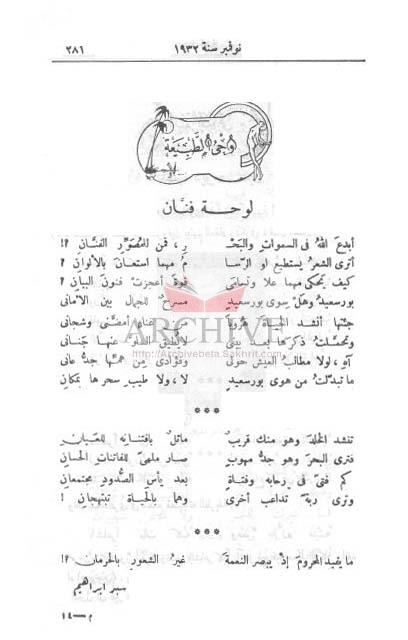 ٢٨١ نوفمبر سنة ١٩٣٢
وحى الطبيعة
لوحة فنان
أبدعَ اللهُ فى السموات والبَحْـ رِ ، فمن للمُصَوِّرِ الفنَّانِ ؟!
أترى الشعرُ يستطيع او الرسا مُ مهما استعانَ بالألوانِ ؟
كيف يَحكى مهما علا وتسامى قوةً أعجزت فنونَ البيانِ ؟
بورسعيد وهل سوى بورسعيدٍ مسرحٌ للجمال بين الأمانى
جئتها أنشد الحياةَ
وتحملت ذكرها بعد بينى لا يُطيق
آهِ ، لولا مطالبُ العيش حولى وفؤادى من همِّها جدُّ عانى
ما تبدَّلت من هوى بورسعيدٍ لا ، ولا طيب سحرها بمكانِ
***
تنشد الخلدَ وهو منك قريبٌ ماثلٌ بافتنانه للعيانِ
فترى البحرَ وهو جدُّ مهوبٍ صار ملهىً للفاتنات الحسان
كم فتىً فى رحابه وفتاةٍ بعد يأس الصُّدودِ مجتمعانِ
وترى ربةً تداعب أخرى وهما بالحياة تبتهجانِ !
***
ما يفيد المحرومَ إذ يبصر النعمةَ غيرُ الشعورِ بالحرمان ؟!
ARCHIVE
http://Archivebeta.Sakhrit.com
ابراهيم
م — ١٤